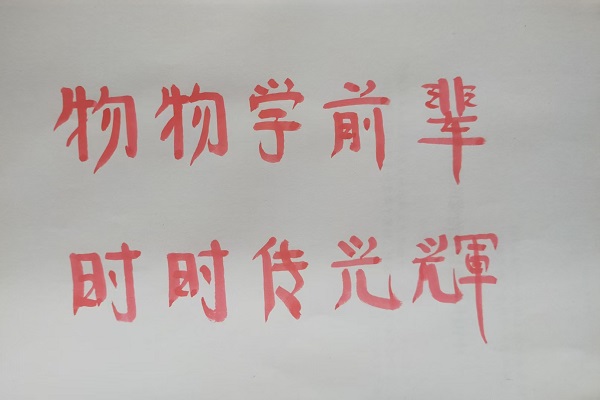 物物学前辈
时时传光輝